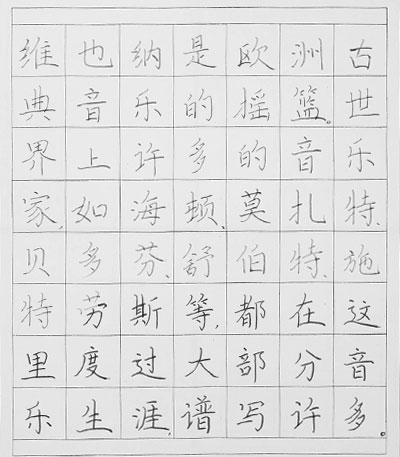 维也纳是欧洲古
典音乐的摇篮。世
界上许多的音乐
家,如海顿、莫扎特、
贝多芬、舒伯特、施
特劳斯等,都在这
里度过大部分音
乐生涯,谱写许多。